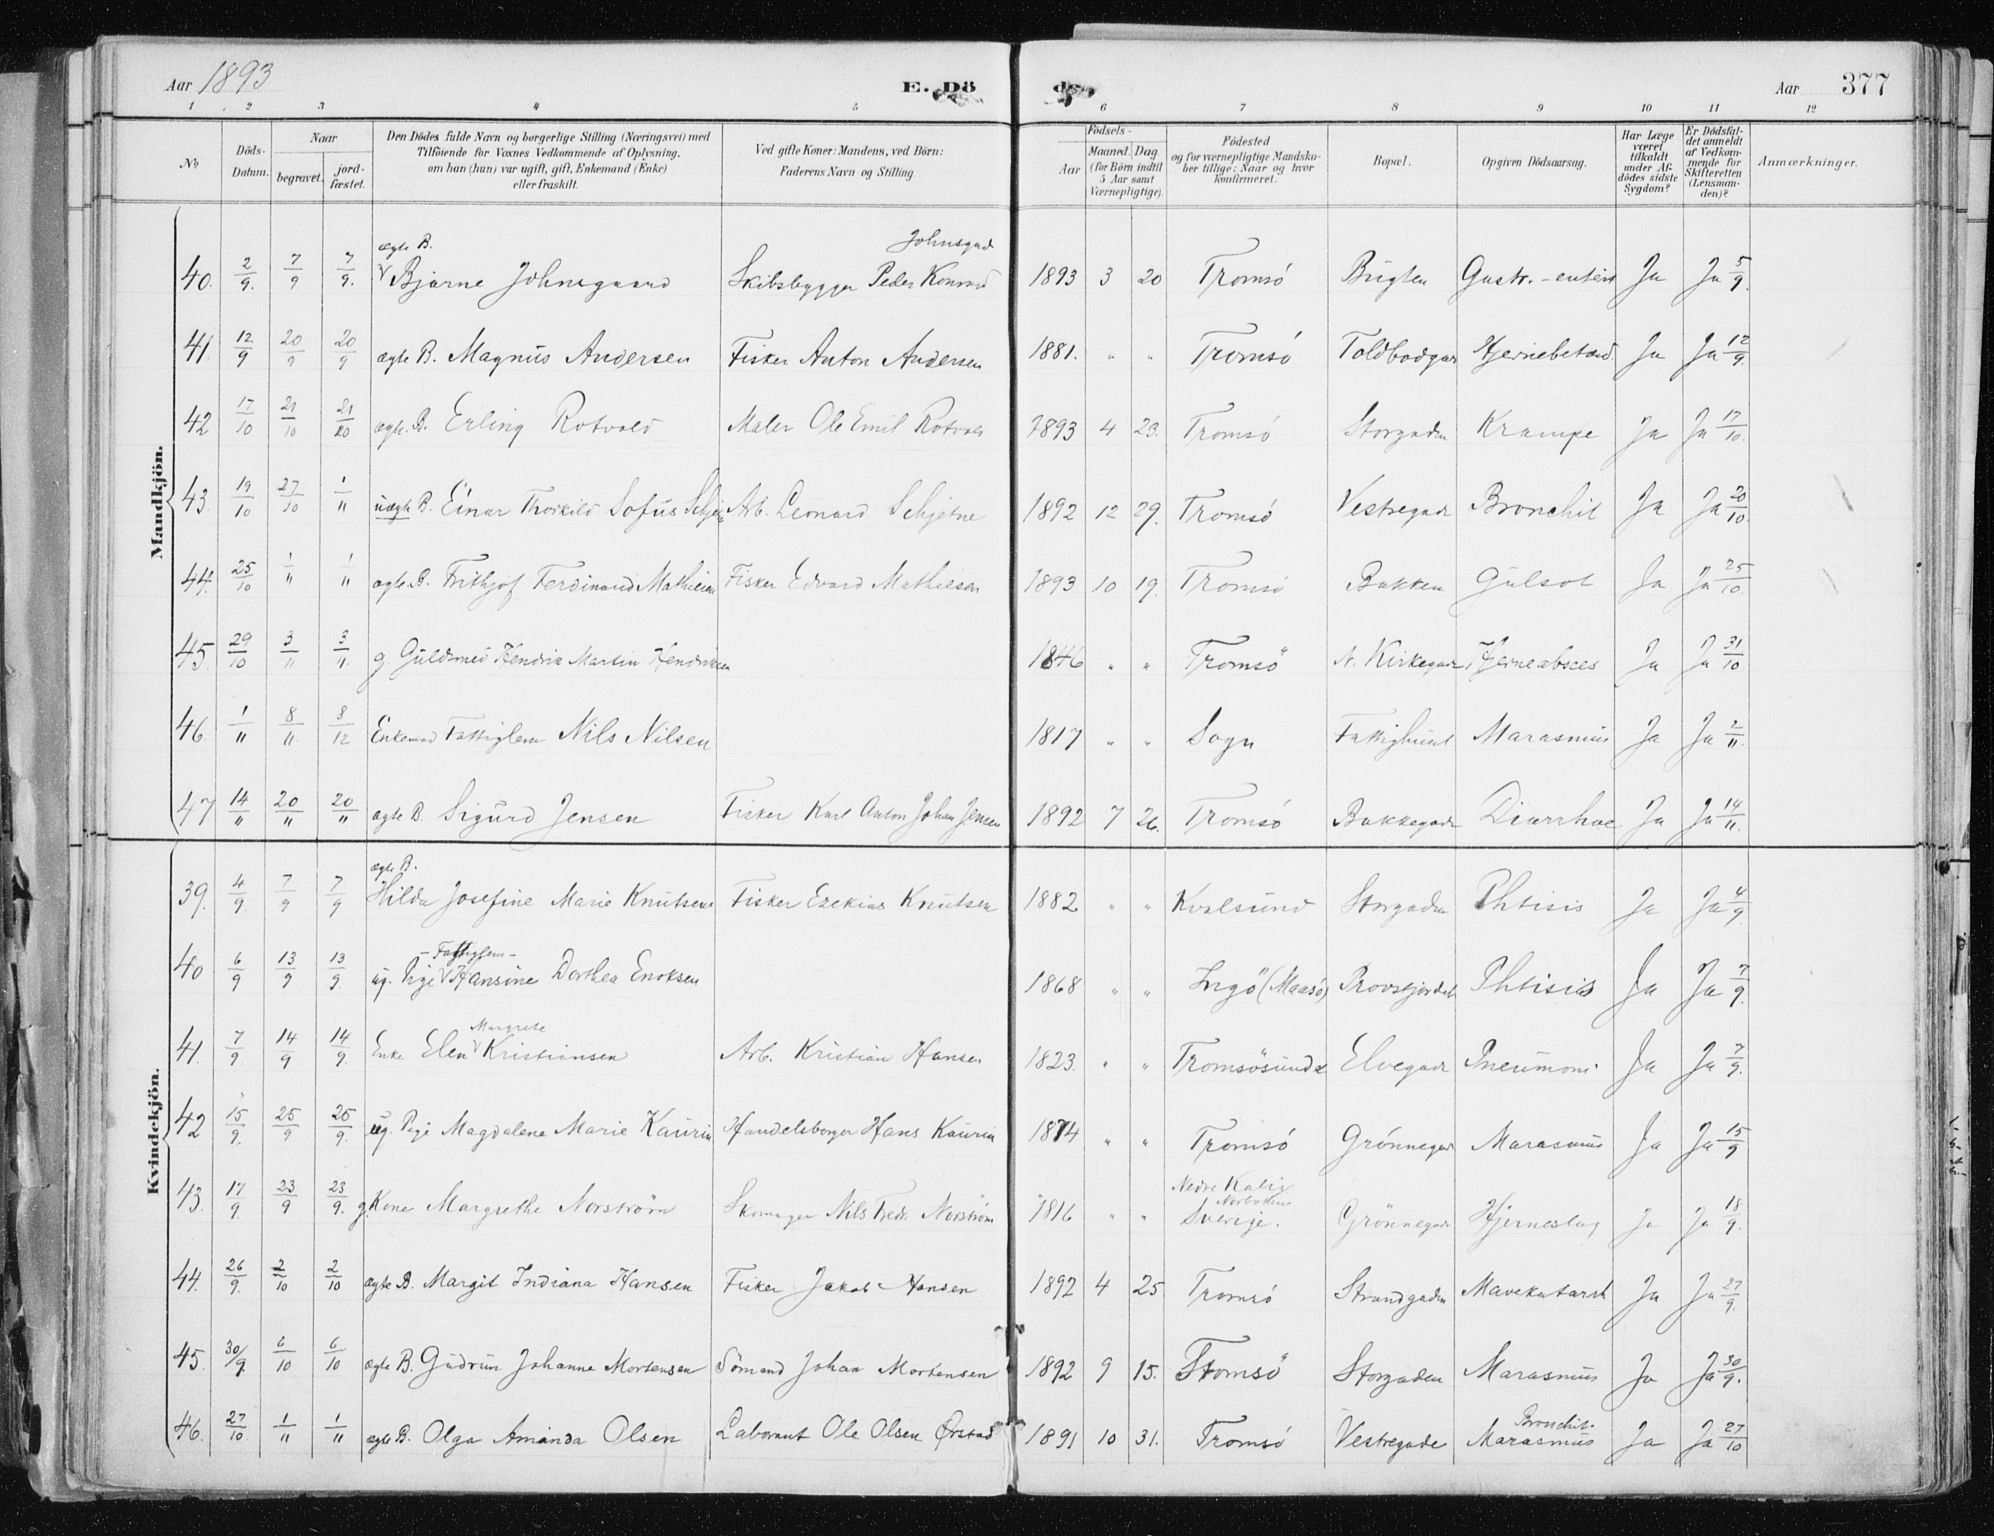 Aar 1893 E. Döde. Aar 377
1 2 3 4 5 6 7 8 9 10 11 12
No
Döds-Datum.
Naar
begravet.
jord-fæstet.
Den Dödes fulde Navn og borgerlige Stilling (Næringsvei) med
Tilföiende for Voxnes Vedkommende af Oplysning,
om han (hun) var ugift, gift, Enkemand (Enke)
eller fraskilt.
Ved gifte Koner: Mandens, ved Börn:
Faderens Navn og Stilling.
Födsels-
Aar
Maaned. Dag.
(for Börn indtil
5 Aar samt
Værnepligtige).
Födested
og for værnepligtige Mandska-
ber tillige: Naar og hvor
konfirmeret.
Bopæl.
Opgiven Dödsaarsag.
Har Læge
været
tilkaldt
under Af-
dödes sidste
Sygdom?
Er Dödsfal-
det anmeldt
af Vedkom-
mende for
Skifteretten
(Lensman-
den)?
Anmærkninger.
Mandkjön.
ægte B. Johnsgard
40. 2/9. 7/9 7/9. Bjarne Johnsgaard Skibsbygger Peder Konrad 1893 3 20 Tromsö Bugten Gastr.-enterit Ja Ja 5/9.
41. 12/9 20/9 20/9. ægte B. Magnus Andersen Fisker Anton Andersen 1881. " " Tromsö Toldbodgad Hjernebetænd. Ja Ja 12/9.
42 17/10 21/10 21/20 ægte. B. Erling Rotvold Maler Ole Emil Rotvold 1893 4 23. Tromsö Storgaden Krampe Ja Ja 17/10.
43. 19/10 27/10 1/11 uægte B. Einar Thorkild Sofus Schjetne Arb. Leonard Schjetne 1892 12 29. Tromsö Vestregad Bronchit Ja Ja 20/10.
44. 25/10 1/11 1/11 ægte. B. Frithjof Ferdinand Mathiesen Fisker Edvard Mathiesen 1893 10 19. Tromsö Bakken Gulsot Ja Ja 25/10.
45. 29/10 3/11 3/11. g. Guldsmed Hendrik Martin Hendriksen 1846 " " Tromsö N. Kirkegad Hjerneabsces Ja Ja 31/10
46. 1/11 8/11. 8/12 Enkemand Fattiglem Nils Nilsen 1817 " " Sogn Fattighuset Marasmus Ja Ja 2/11.
47 14/11 20/11 20/11 ægte B. Sigurd Jensen Fisker Karl Anton Johan Jensen 1892 7 26. Tromsö Bakkegad Diarrhoe Ja Ja 14/11.
Kvindekjön.
ægte B.
39. 4/9. 7/9 7/9 Hilda Josefine Marie Knutsen Fisker Ezekias Knutsen 1882 " " Kvalsund Storgaden Phtisis Ja Ja 4/9
- Fattiglem -
40 6/9 13/9 13/9. ug. Pige Hansine Dorthea Enoksen 1868 " " Ingö (Maasö) Provstjordet Phtisis Ja Ja 7/9.
Margrete
41. 7/9. 14/9 14/9. Enke Elen Kristiansen Arb. Kristian Hansen 1823. " " Tromsösundet Elvegad Pneumoni Ja Ja 7/9.
42 15/9. 25/9 25/9. ug. Pige Magdalene Marie Kaurin Handelsborger Hans Kaurin 1874 " " Tromsö Grönnegad Marasmus Ja Ja 15/9
Nedre Kalix
Norbotten
43. 17/9. 23/9 23/9. g. Kone Margrethe Norström Skomager Nils Fredr. Norström 1816 " " Sverige. Grönnegad Hjerneslag Ja Ja 18/9.
44. 26/9. 2/10 2/10 ægte B. Margit Indiana Hansen Fisker Jakob Hansen 1892 4 25 Tromsö Strandgaden Mavekatarrh Ja Ja 27/9.
45. 30/9. 6/10 6/10 ægte B. Gudrun Johanne Mortensen Sömand Johan Mortensen 1892 9 15. Tromsö Storgaden Marasmus Ja Ja 30/9.
Bronchit.
46. 27/10. 1/11 1/11 ægte B. Olga Amanda Olsen Laborant Ole Olsen Ørstad 1891 10 31. Tromsö Vestregade Marasmus Ja Ja 27/10